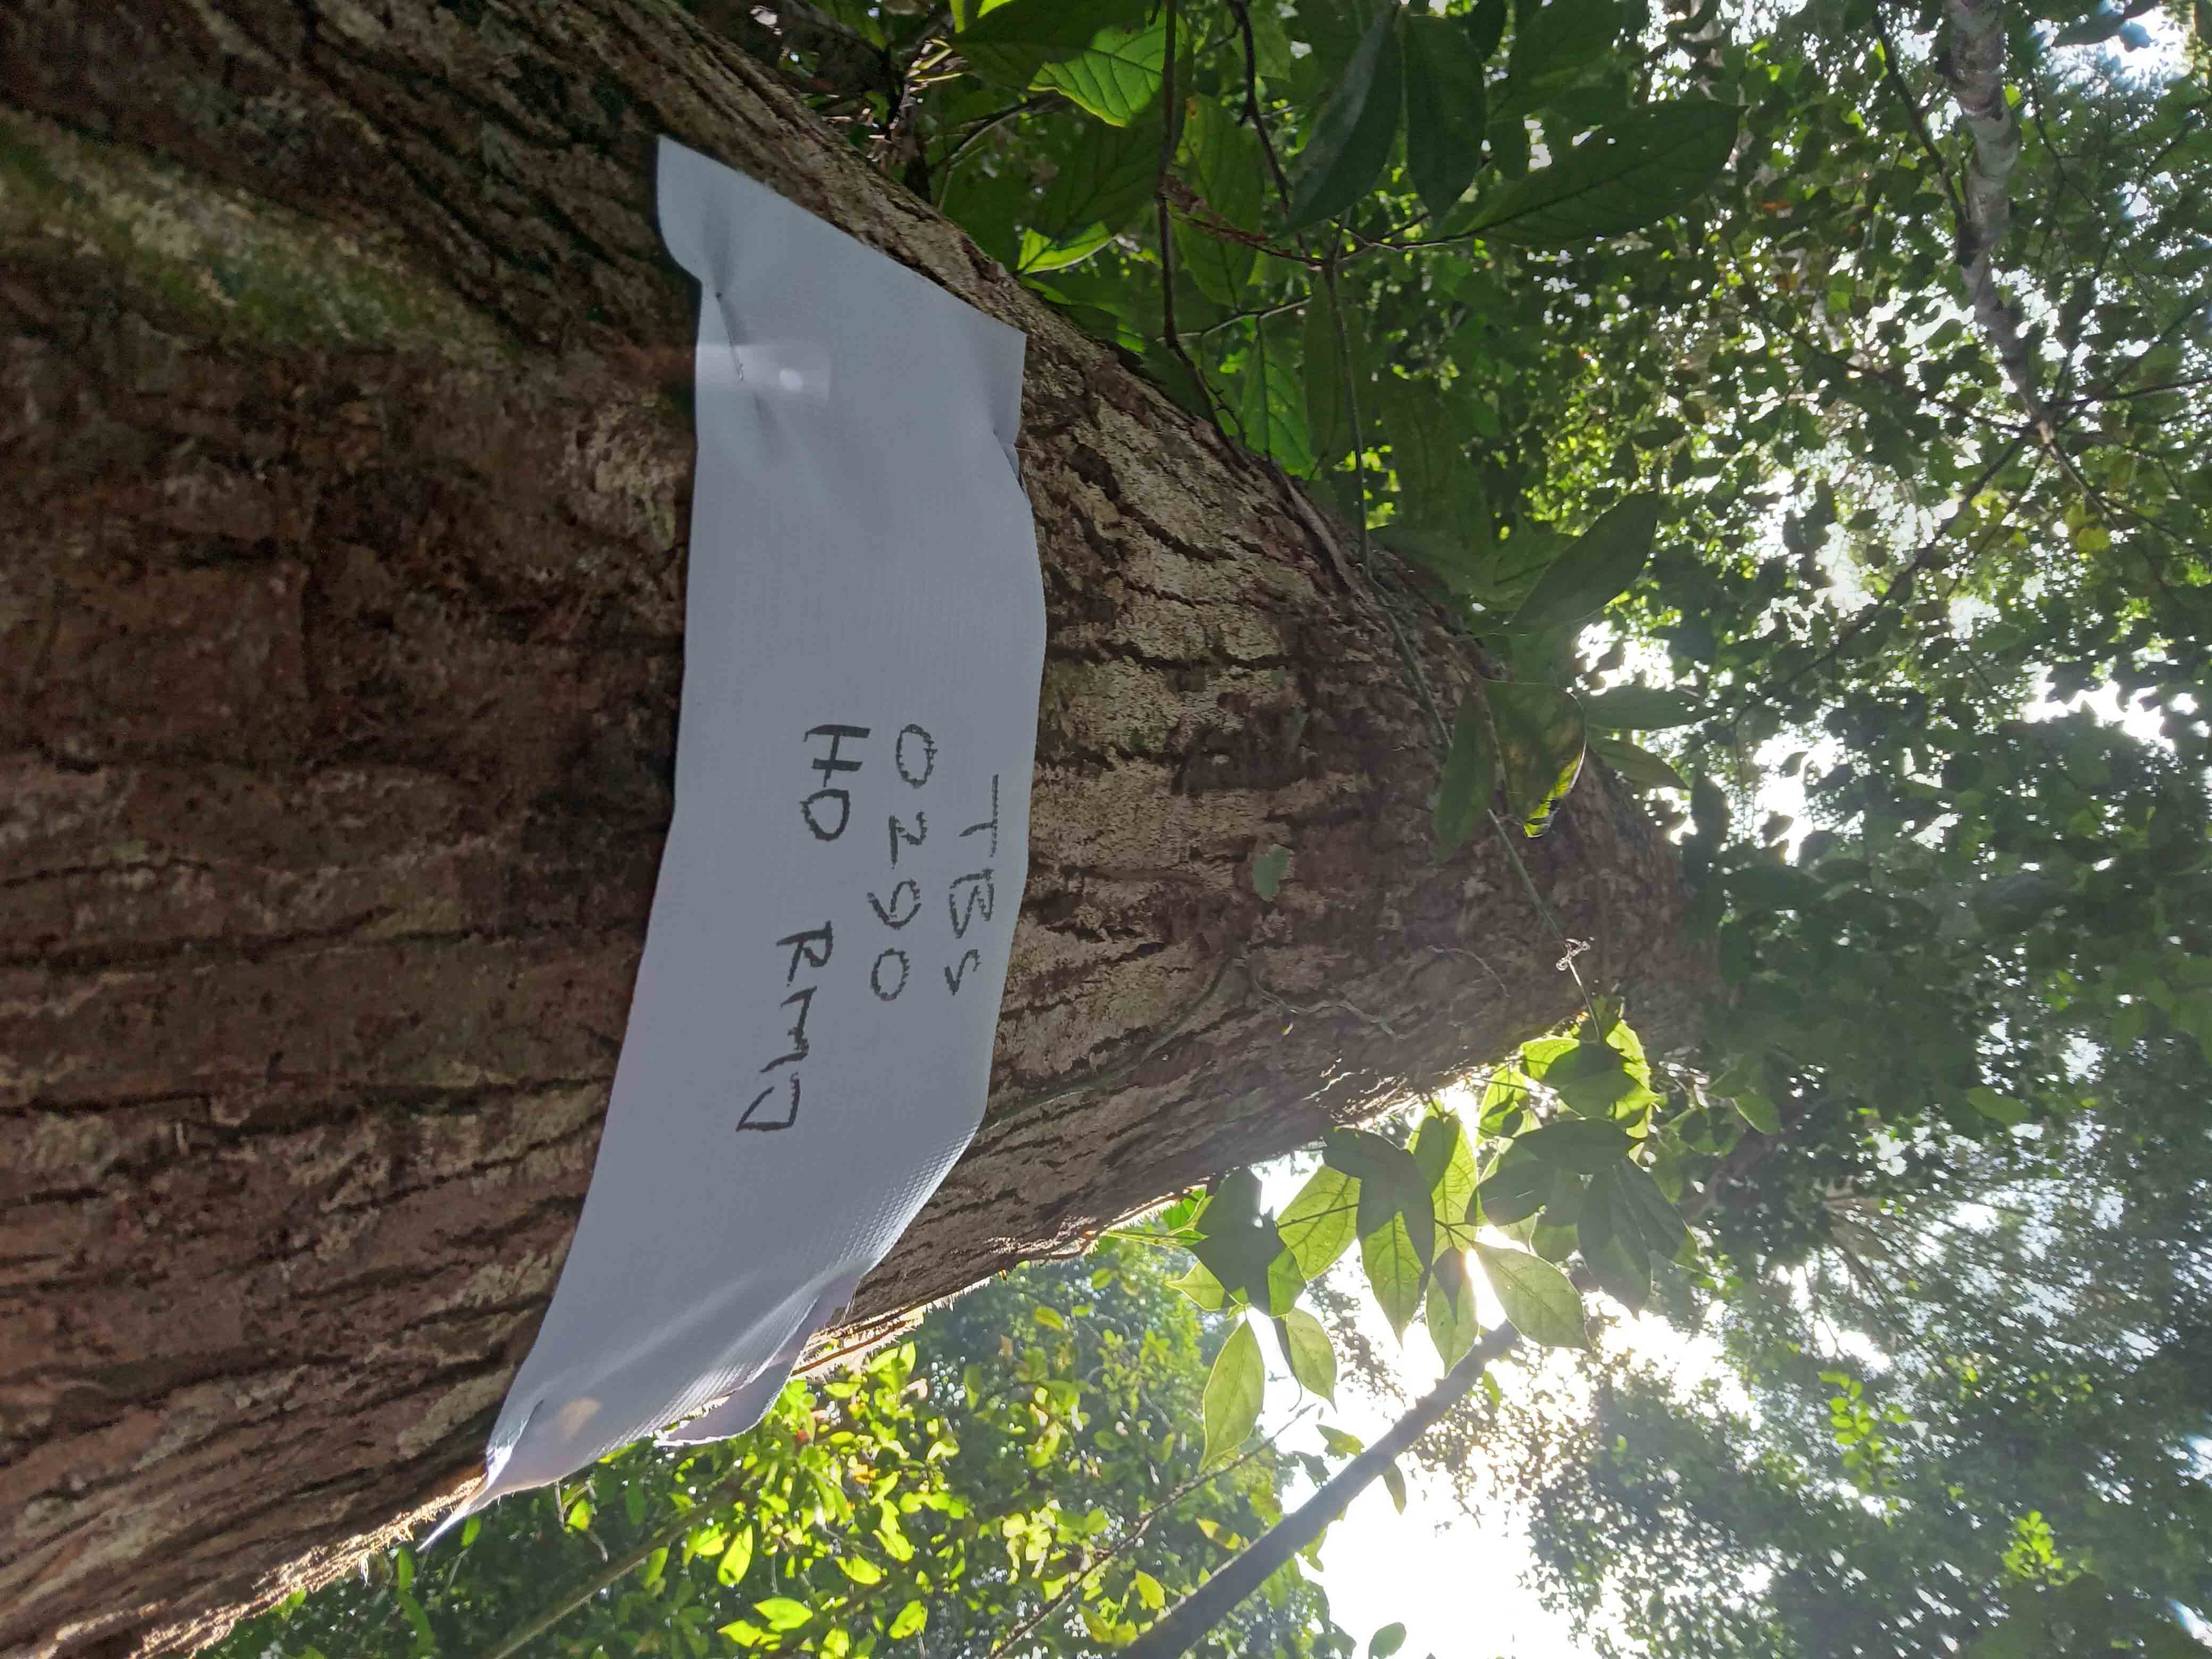 TBS
0290
HD RMD